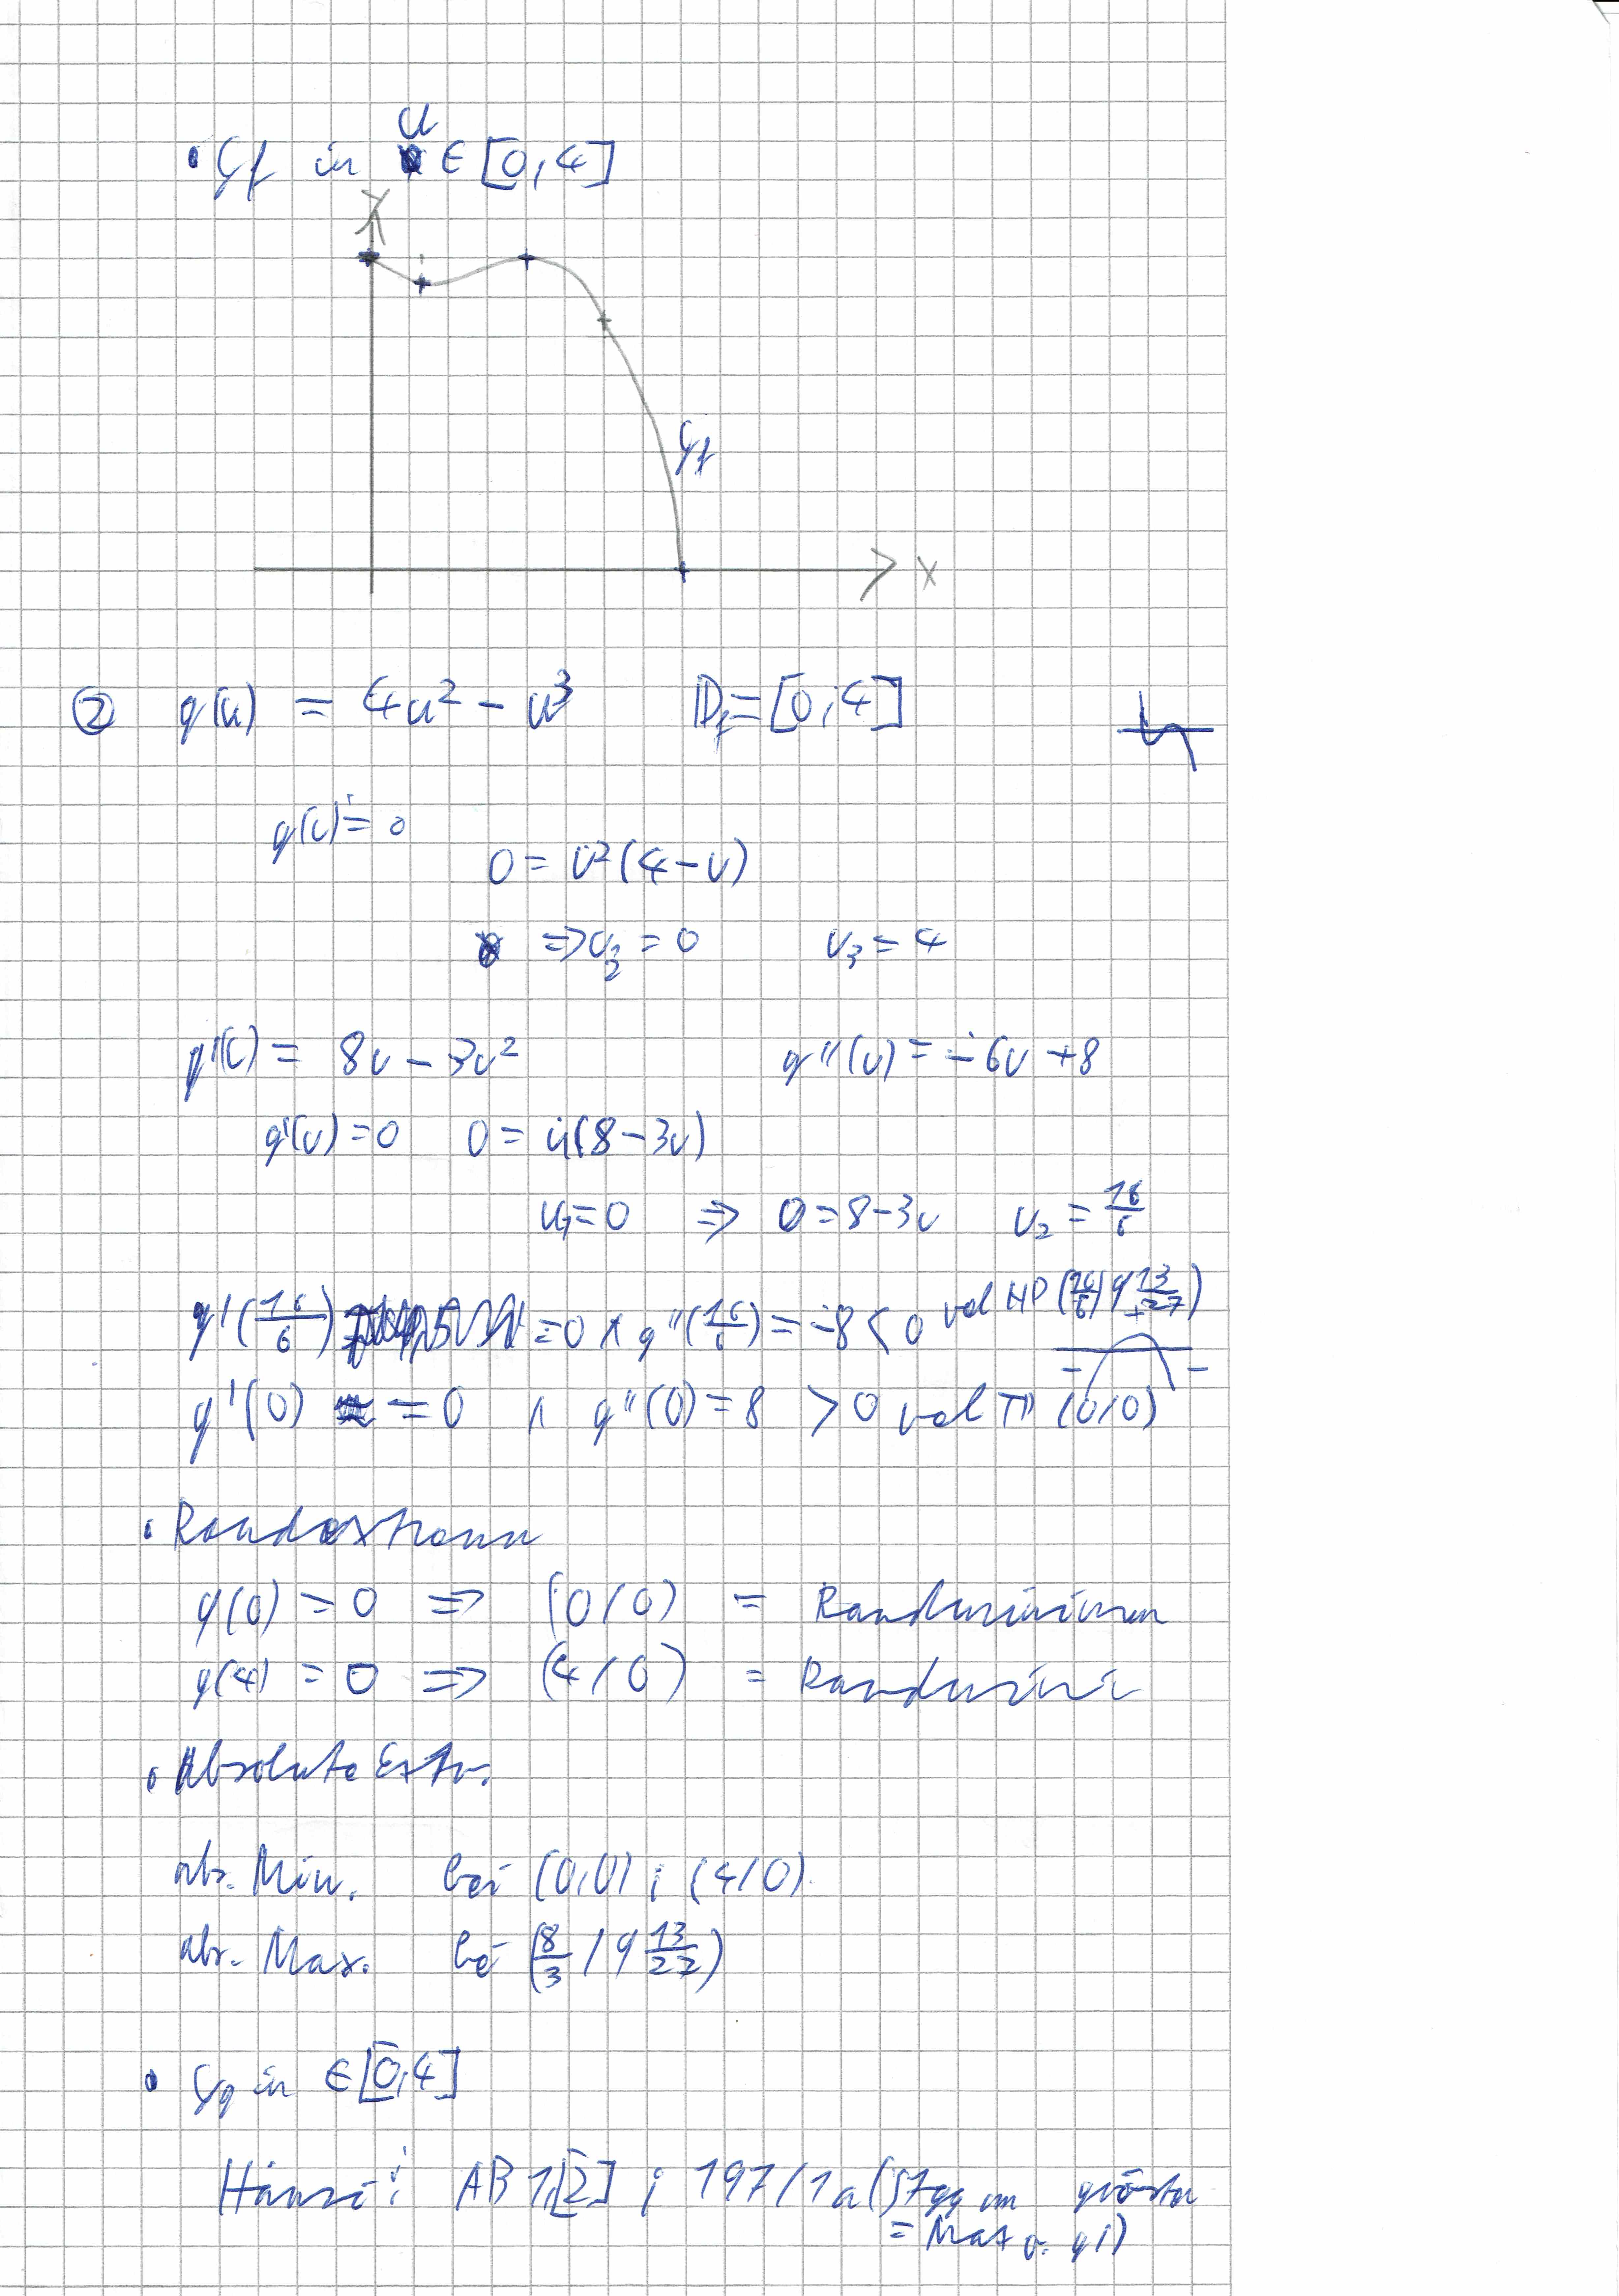 • Gf in u ∈ [0;4]
y
Gf
x
② g(u) = 4u² − u³ Df = [0;4]
g(u) != 0
0 = u²(4−u)
⇒ u½ = 0 u₃ = 4
g'(u) = 8u − 3u² g''(u) = −6u + 8
g'(u) = 0 0 = u(8−3u)
u₁ = 0 ⇒ 0 = 8−3u u₂ = 16/6
g'(16/6) = 0 ∧ g''(16/6) = −8 < 0 rel HP (16/6 / 9 13/27)
− + −
g'(0) = 0 ∧ g''(0) = 8 > 0 rel TP (0/0)
• Randextrema
g(0) = 0 ⇒ (0/0) = Randminimum
g(4) = 0 ⇒ (4/0) = Randmini
• Absolute Extr.
abs. Min. bei (0/0) ; (4/0)
abs. Max. bei (8/3 / 9 13/27)
• Gg in ∈ [0;4]
Hausi: AB 1,[2] ; 197/1a (Stgg am größten
= Max v. g')